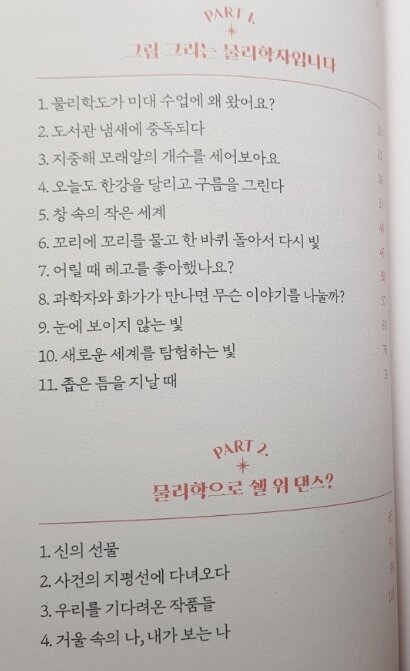 PART 1.
그림 그리는 물리학자입니다
1. 물리학도가 미대 수업에 왜 왔어요?
2. 도서관 냄새에 중독되다
3. 지중해 모래알의 개수를 세어보아요
4. 오늘도 한강을 달리고 구름을 그린다
5. 창 속의 작은 세계
6. 꼬리에 꼬리를 물고 한 바퀴 돌아서 다시 빛
7. 어릴 때 레고를 좋아했나요?
8. 과학자와 화가가 만나면 무슨 이야기를 나눌까?
9. 눈에 보이지 않는 빛
10. 새로운 세계를 탐험하는 빛
11. 좁은 틈을 지날 때
PART 2.
물리학으로 쉘 위 댄스?
1. 신의 선물
2. 사건의 지평선에 다녀오다
3. 우리를 기다려온 작품들
4. 거울 속의 나, 내가 보는 나